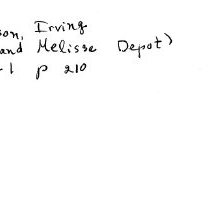 son, Irving
and Melisse Depot)
-1 p 210